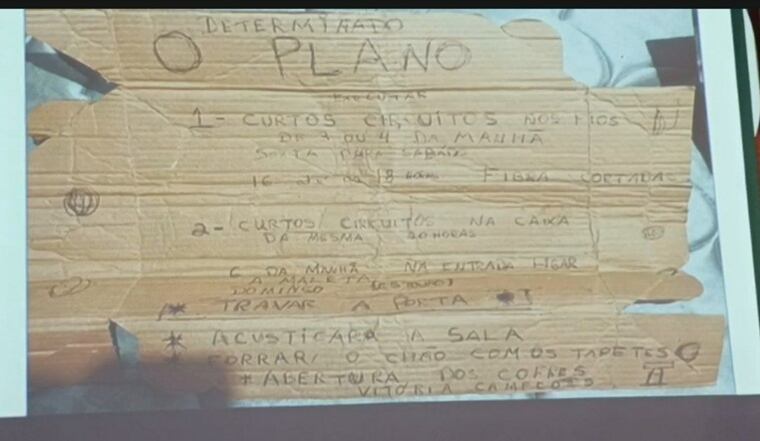 DETERMINADO
O PLANO
EXECUTAR
1- CURTOS CIRCUITOS NOS FIOS
DA 3 OU 4 DA MANHÃ
SEXTA PARA SABADO
16 18 FIBRA CORTADA
2- CURTOS CIRCUITOS NA CAIXA
DA MESMA 20 HORAS
6 DA MANHÃ NA ENTRADA LIGAR
A MALETA
DOMINGO
* TRAVAR A PORTA *
* ACUSTICARA A SALA
* FORRAR O CHÃO COM OS TAPETES
* ABERTURA DOS COFRES
VITORIA
II